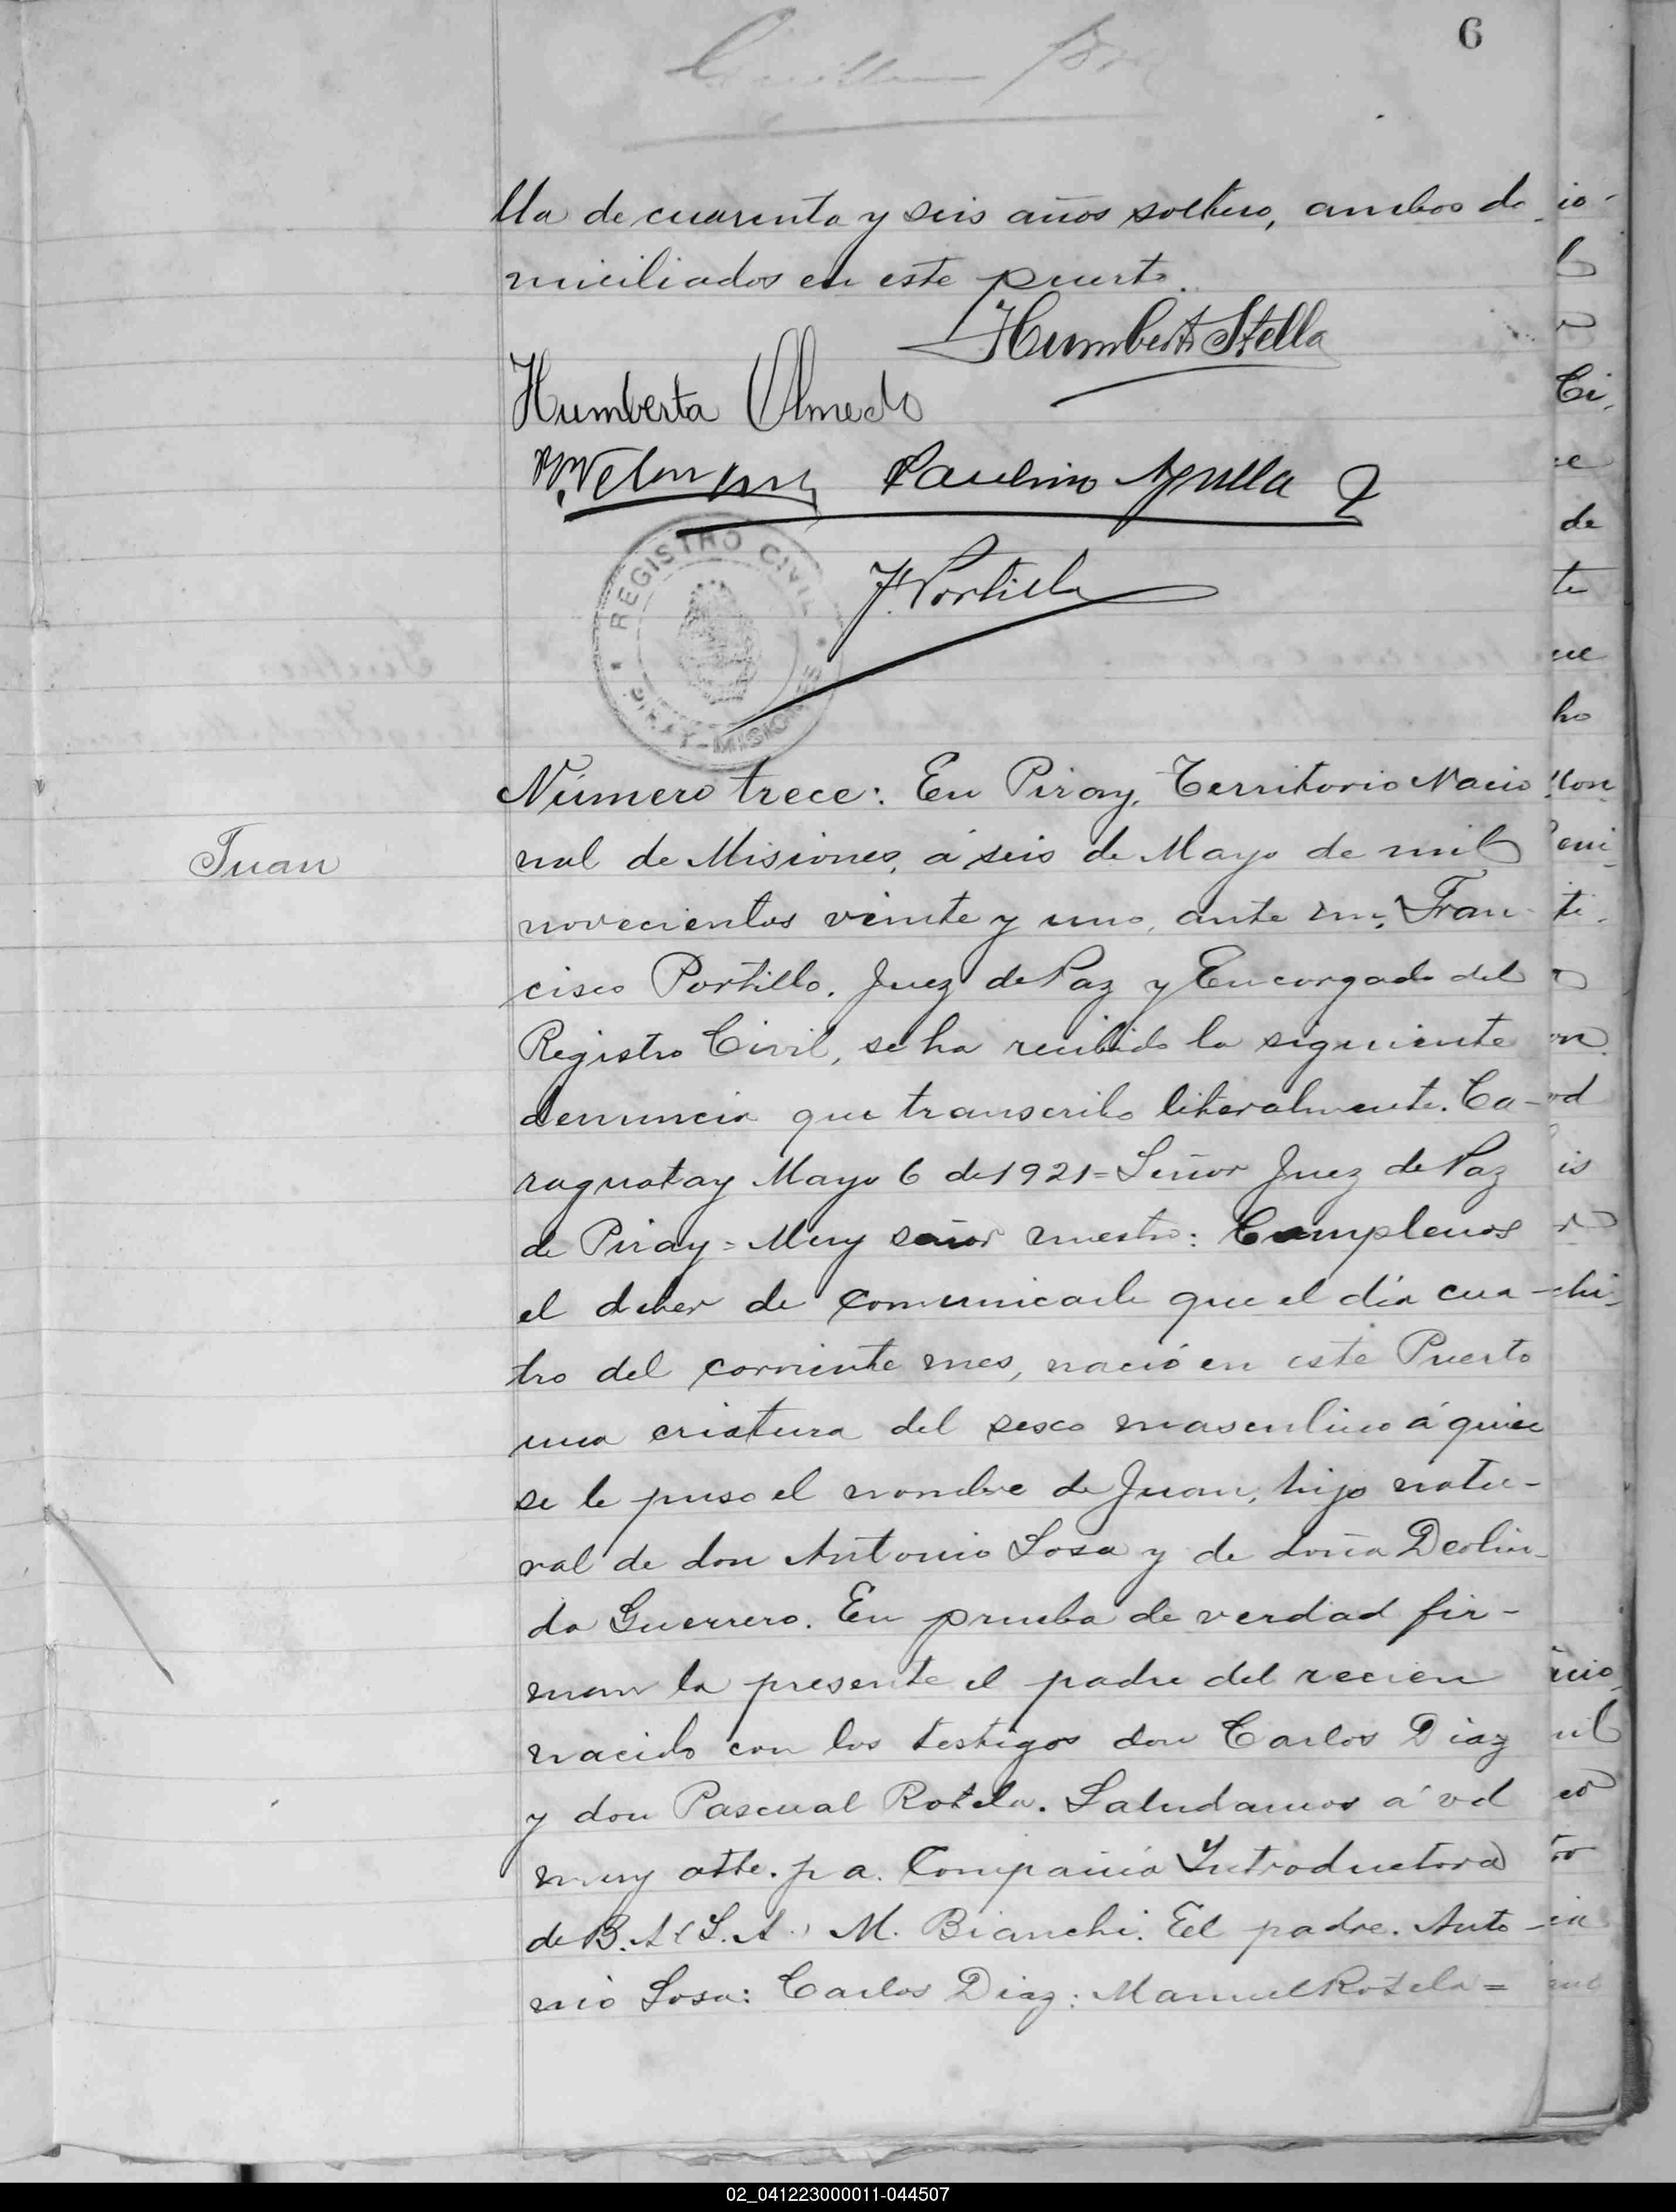 6
lla de cuarenta y seis años soltero, ambos do
miciliados en este puerto.
Humberto Stella
Humberta Olmedo
Paulino Ayulla
REGISTRO CIVIL
PIRAY-MISIONES
F. Portillo
Número trece: En Piray, Territorio Nacio
Juan
nal de Misiones, á seis de Mayo de mil
novecientos veinte y uno, ante mi, Fran-
cisco Portillo. Juez de Paz y Encargado del
Registro Civil, se ha recibido la siguiente
denuncia que transcribo literalmente. Ca-
raguatay Mayo 6 de 1921= Señor Juez de Paz
de Piray = Muy señor nuestro: Cumplenos
el deber de comunicarle que el día cua-
tro del corriente mes, nació en este Puerto
una criatura del sexo masculino á quien
se le puso el nombre de Juan, hijo natu-
ral de don Antonio Sosa y de doña Deolin-
da Guerrero. En prueba de verdad fir-
man la presente el padre del recien
nacido con los testigos don Carlos Diaz
y don Pascual Rotela. Saludamos á vd
muy atte. p a. Compañia Introductora
de B. A (S. A.) M. Bianchi. El padre. Anto-
nio Sosa: Carlos Diaz: Manuel Rotela =
02_041223000011-044507